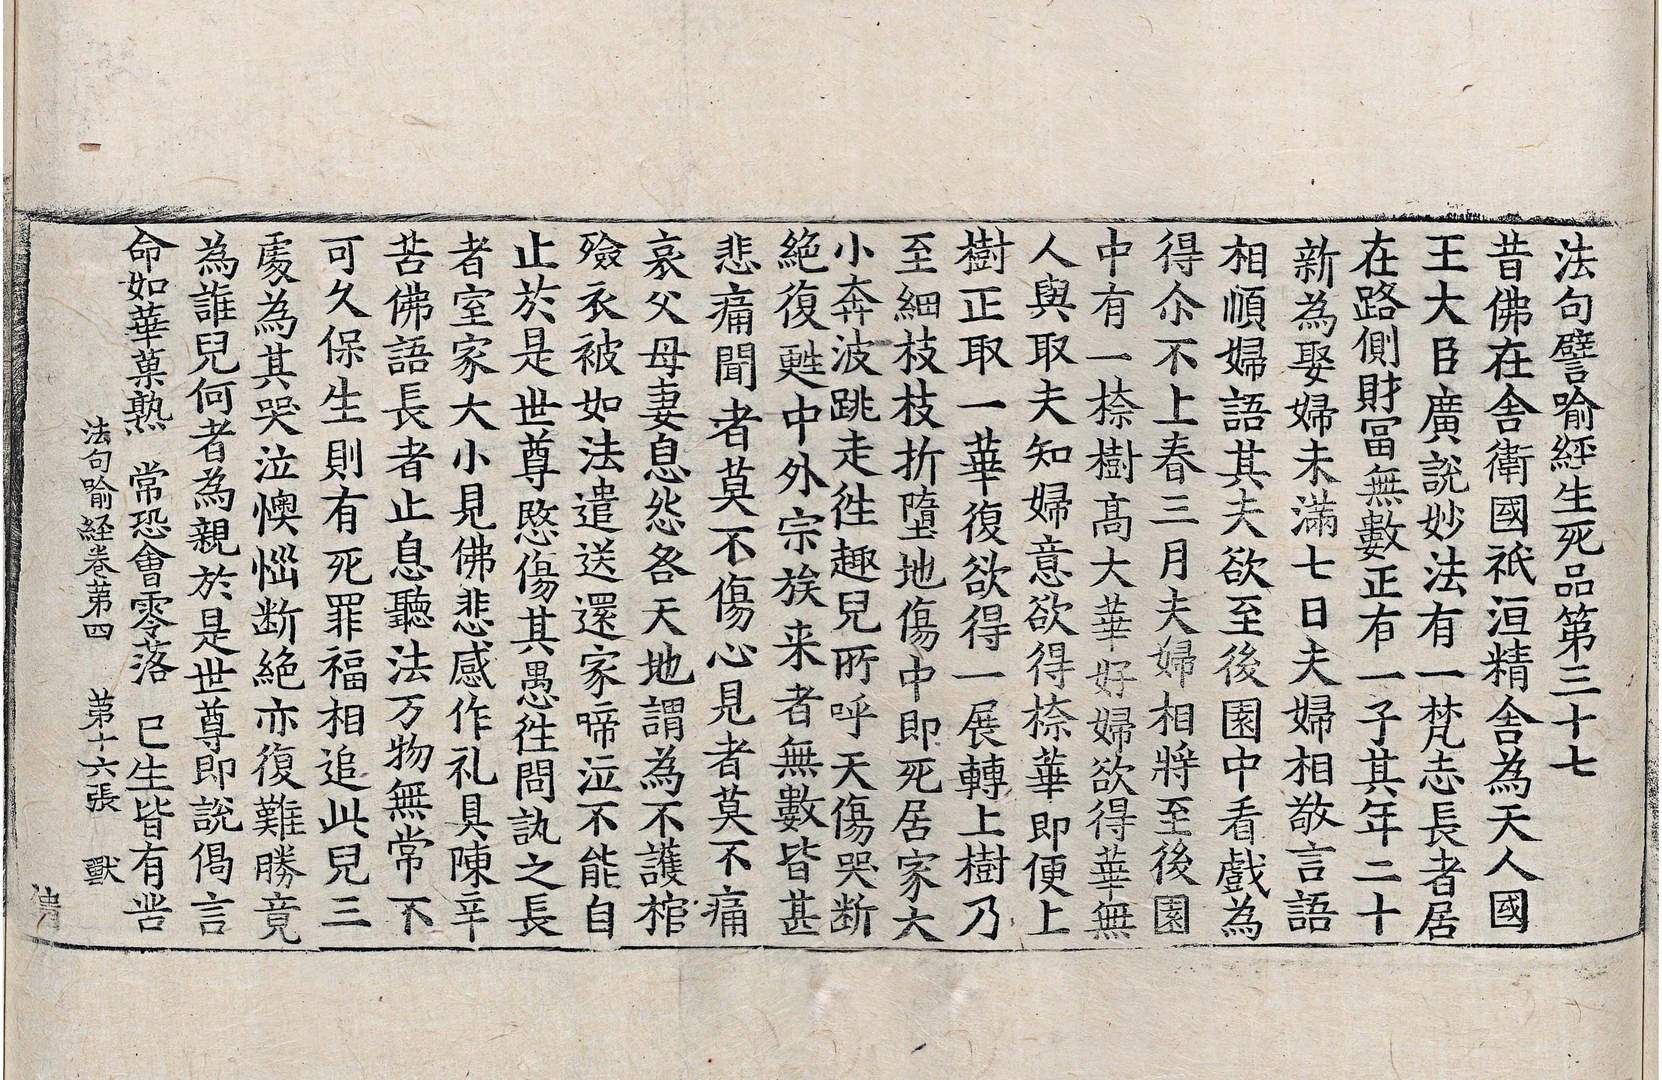 法句譬喻經生死品第三十七
昔佛在舍衛國祇洹精舍為天人國
王大臣廣說妙法有一梵志長者居
在路側財冨無數正有一子其年二十
新為娶婦未滿七日夫婦相敬言語
相順婦語其夫欲至後園中看戲為
得尒不上春三月夫婦相將至後園
中有一㮈樹高大華好婦欲得華無
人與取夫知婦意欲得㮈華即便上
樹正取一華復欲得一展轉上樹乃
至細枝枝折墮地傷中即死居家大
小奔波跳走徃趣兒所呼天傷哭断
絕復甦中外宗族来者無數皆甚
悲痛聞者莫不傷心見者莫不痛
哀父母妻息怨咎天地謂為不護棺
殮衣被如法遣送還家啼泣不能自
止於是世尊愍傷其愚徃問訊之長
者室家大小見佛悲感作礼具陳辛
苦佛語長者止息聽法万物無常不
可久保生則有死罪福相追此兒三
處為其哭泣懊惱断絕亦復難勝竟
為誰兒何者為親於是世尊即說偈言
命如華菓熟　常恐會零落　已生皆有苦
法句喻経卷第四　第十六張　獸